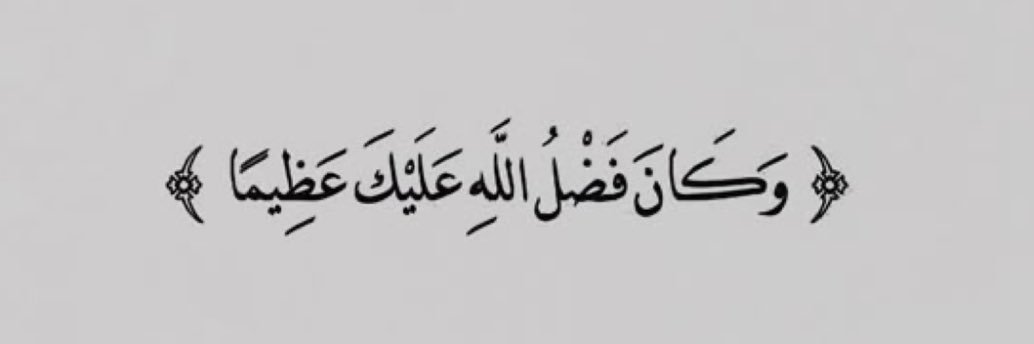 ﴿ وَكَانَ فَضْلُ اللَّهِ عَلَيْكَ عَظِيمًا ﴾